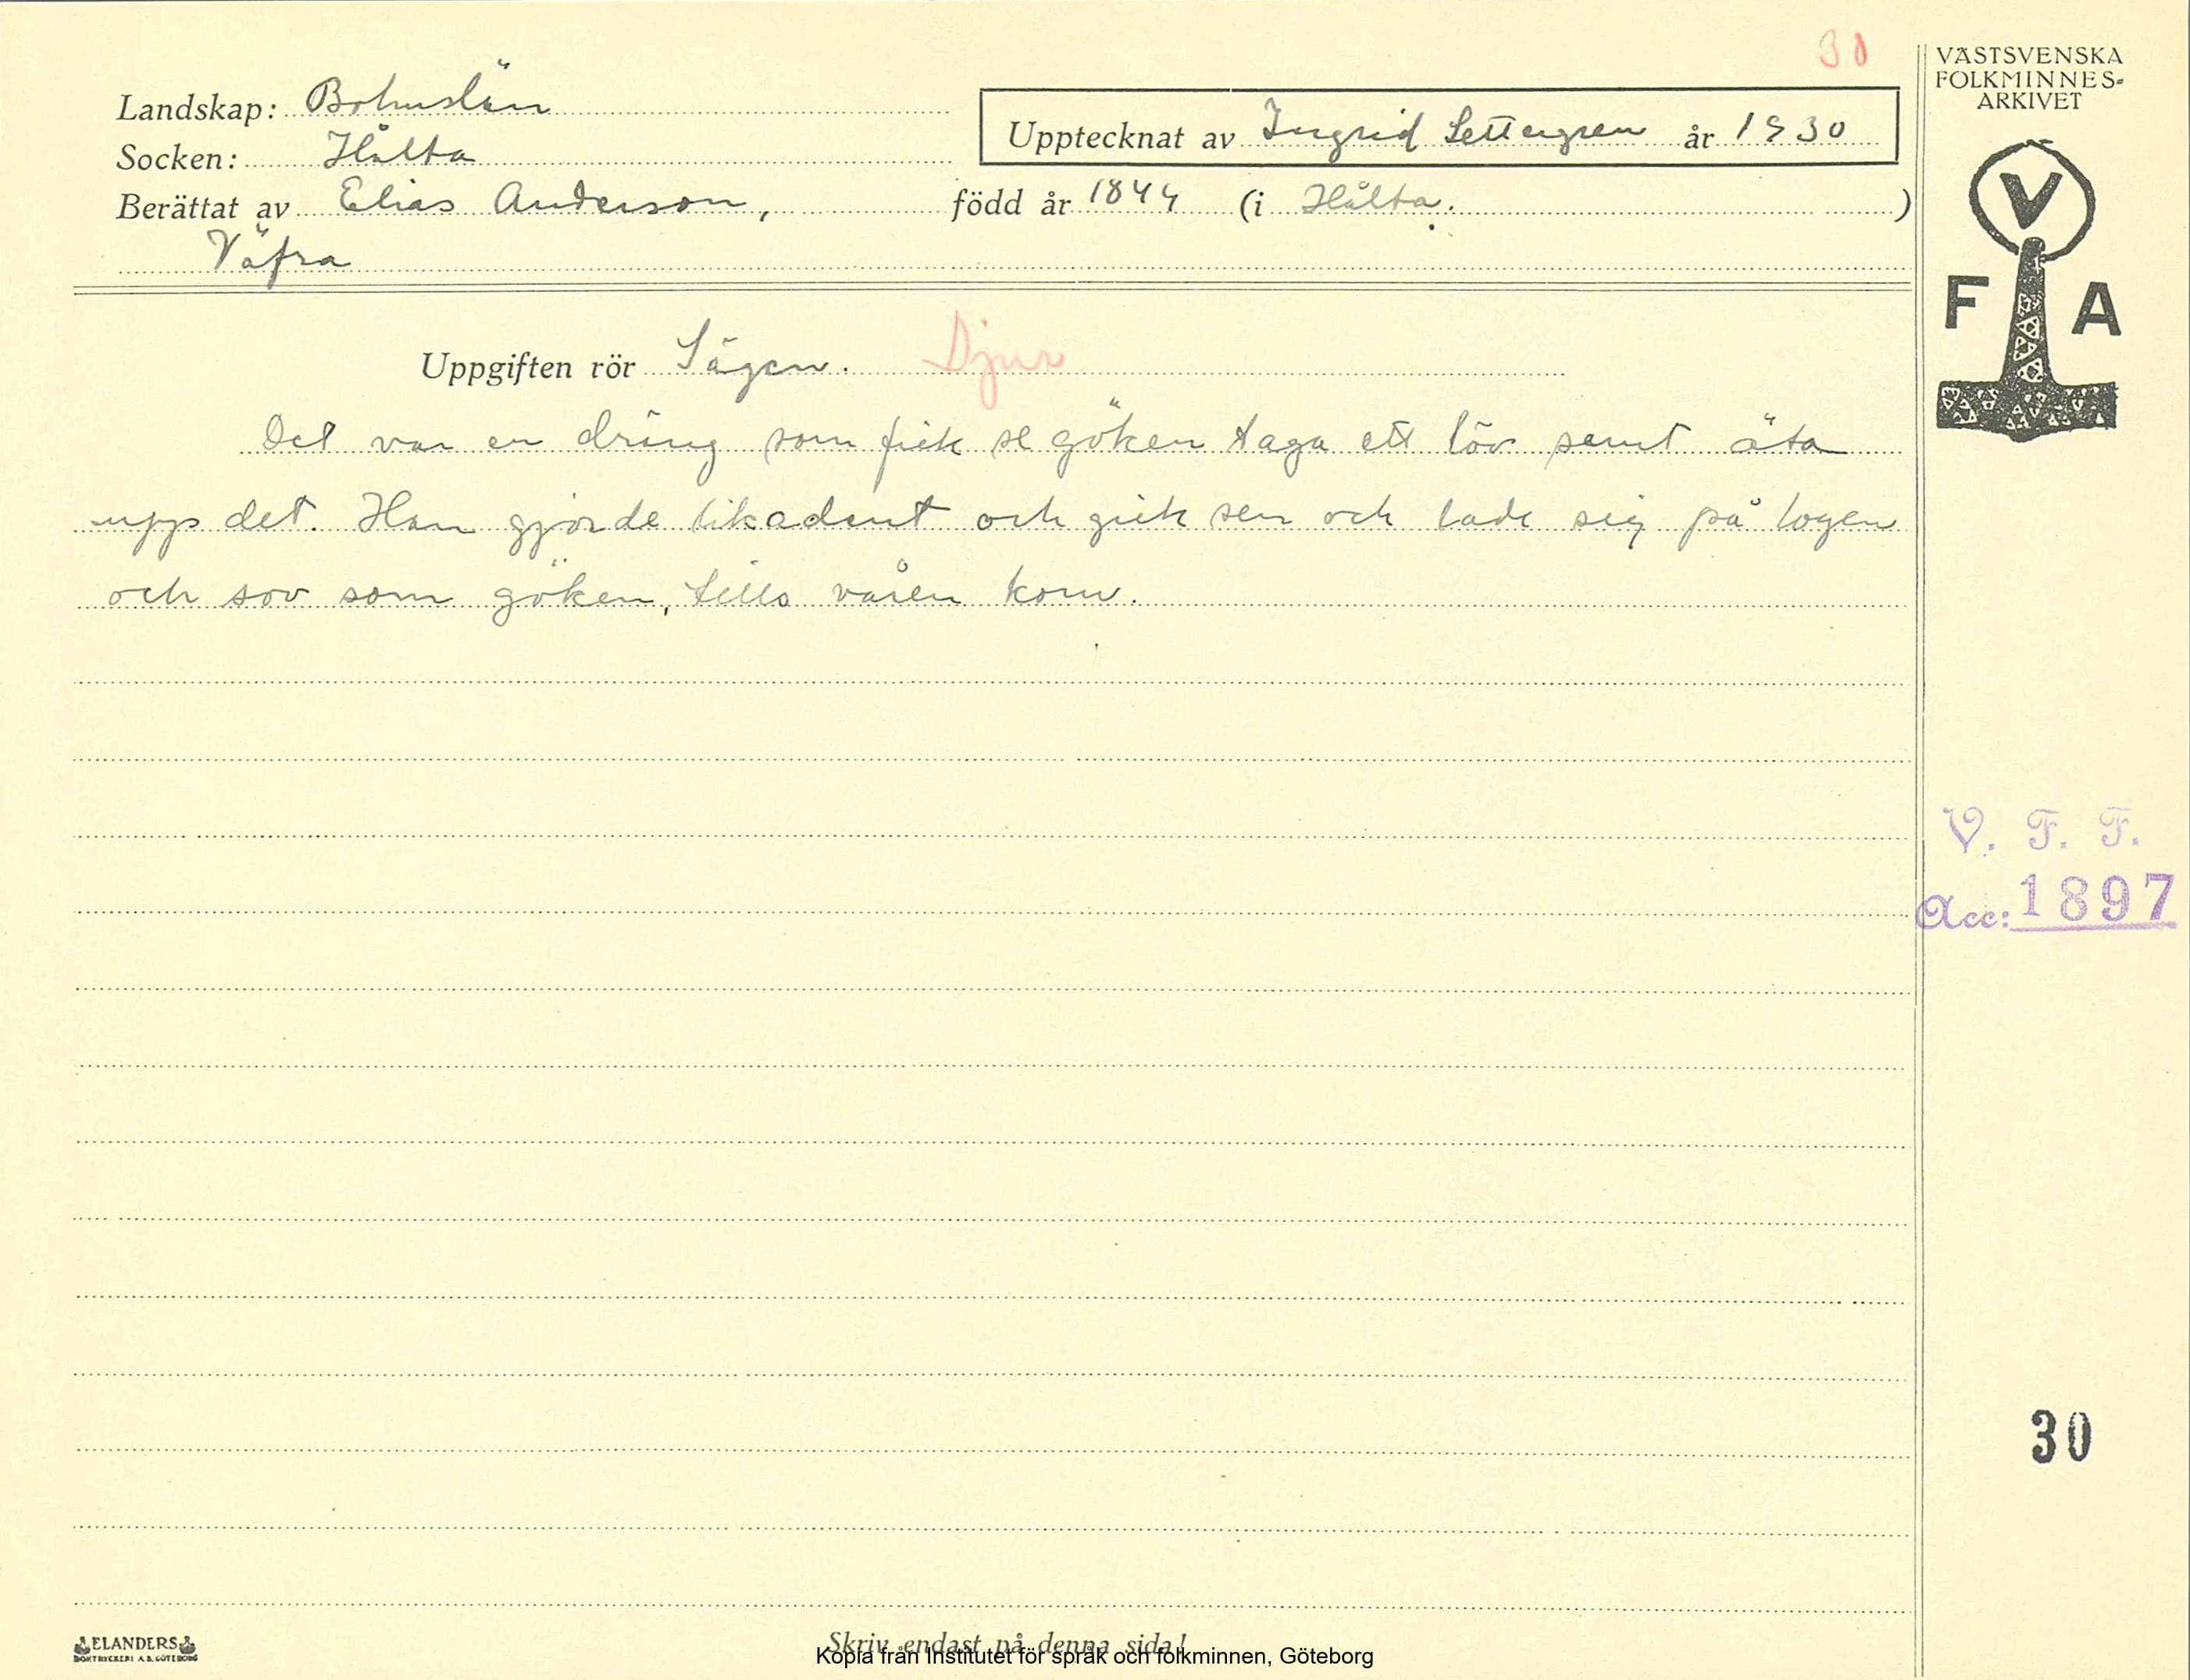 30
VÄSTSVENSKA
FOLKMINNES-
ARKIVET
Landskap: Bohuslän
Upptecknat av Ingrid Settergren år 1930
Socken: Hålta
Berättat av Elias Anderson, född år 1844 (i Hålta.)
Väfra
V
F A
Uppgiften rör Sägen. Djur
Det var en dräng som fick se göken taga ett löv samt äta
upp det. Han gjorde likadant och gick sen och lade sig på logen
och sov som göken, tills våren kom.
V. F. F.
Acc: 1897
30
ELANDERS
BOKTRYCKERI A.B. GÖTEBORG
Skriv endast på denna sida!
Kopia från Institutet för språk och folkminnen, Göteborg